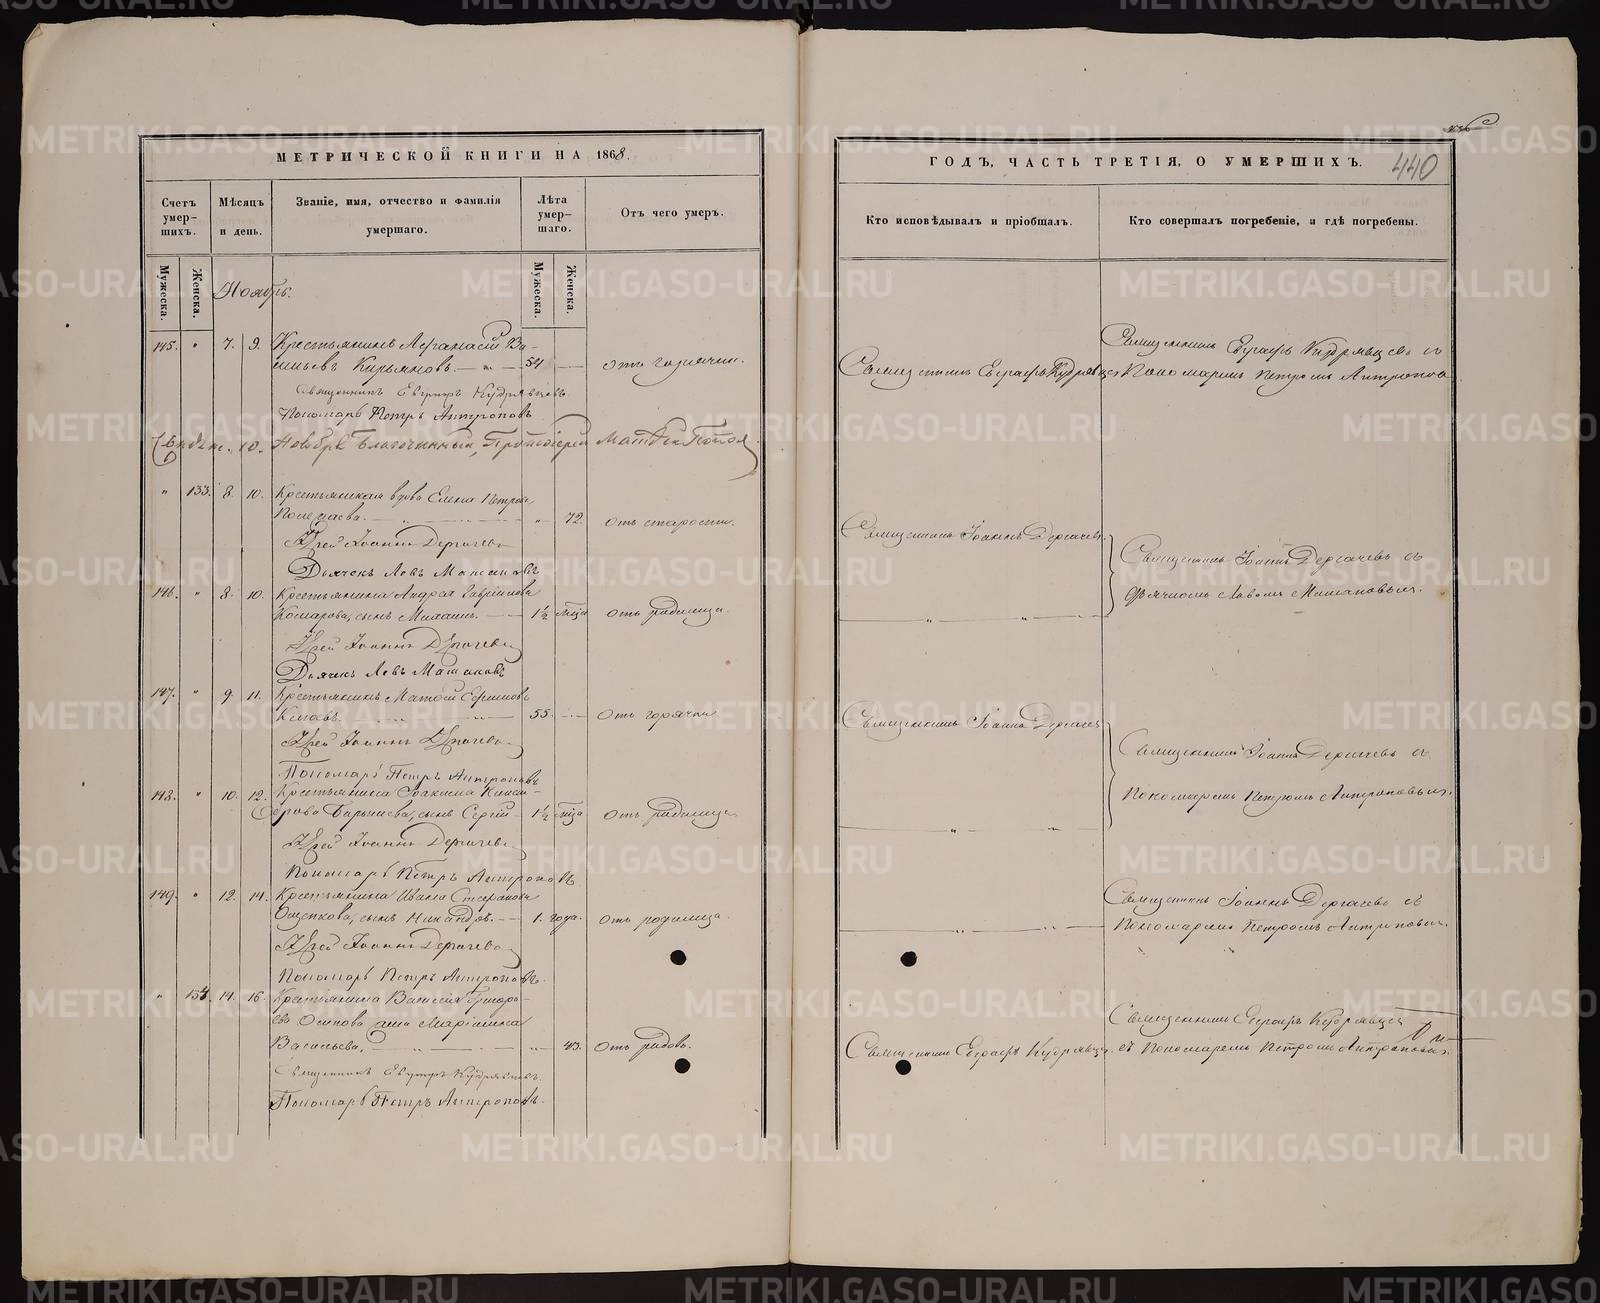 МЕТРИЧЕСКОЙ КНИГИ НА 1868.
Счетъ умер-шихъ.
Мѣсяцъ и день.
Званіе, имя, отчество и фамилія умершаго.
Лѣта умер-шаго.
Отъ чего умеръ.
Мужеска.
Женска.
Мужеска.
Женска.
Ноябрь.
145. " 7. 9. Крестьянинъ Аѳанасій Ва-
сильевъ Кирьяновъ. 54 отъ горячки.
Священникъ Евграфъ Кудрявцевъ
Пономарь Петръ Антроповъ
10. Ноября Благочинный, Протоіерей
" 133. 8. 10. Крестьянская вдова Елена Петрова
" 72. отъ старости.
Іерей Іоаннъ Дергачевъ
Дьячекъ Левъ
146. " 8. 10. Крестьянина Андрея Гаврилова
Комарова, сынъ Михаилъ. 1½ мѣца отъ родимца.
Іерей Іоаннъ Дергачевъ
Дьячекъ Левъ
147. " 9. 11. Крестьянинъ Матѳей Ефимовъ
55. отъ горячки
Іерей Іоаннъ Дергачевъ
Пономарь Петръ Антроповъ
148. " 10. 12. Крестьянина
сынъ Сергій 1½ мѣца отъ родимца
Іерей Іоаннъ Дергачевъ
Пономарь Петръ Антроповъ
149. " 12. 14. Крестьянина Ивана Стефанова
Ощепкова, сынъ Никандръ. 1. года. отъ родимца.
Іерей Іоаннъ Дергачевъ
Пономарь Петръ Антроповъ.
" 134. 14. 16. Крестьянина Василія Григорь-
ева Осипова жена Маріамна
Васильева, 43. отъ родовъ.
Священникъ Евграфъ Кудрявцевъ.
Пономарь Петръ Антроповъ.
440
ГОДЪ, ЧАСТЬ ТРЕТІЯ, О УМЕРШИХЪ.
Кто исповѣдывалъ и пріобщалъ.
Кто совершалъ погребеніе, и гдѣ погребены.
Священникъ Евграфъ Кудрявцевъ съ
Священникъ Евграфъ Кудрявцевъ
Пономаремъ Петромъ Антропов
Священникъ Іоаннъ Дергачевъ.
Священникъ Іоаннъ Дергачевъ съ
дьячкомъ Львомъ
Священникъ Іоаннъ Дергачевъ
Священникъ Іоаннъ Дергачевъ съ
Пономаремъ Петромъ Антроповымъ.
Священникъ Іоаннъ Дергачевъ съ
Пономаремъ Петромъ Антроповым.
Священникъ Евграфъ Кудрявцев
Священникъ Евграфъ Кудрявцев. съ Пономаремъ Петромъ Антроповым.
METRIKI.GASO-URAL.RU